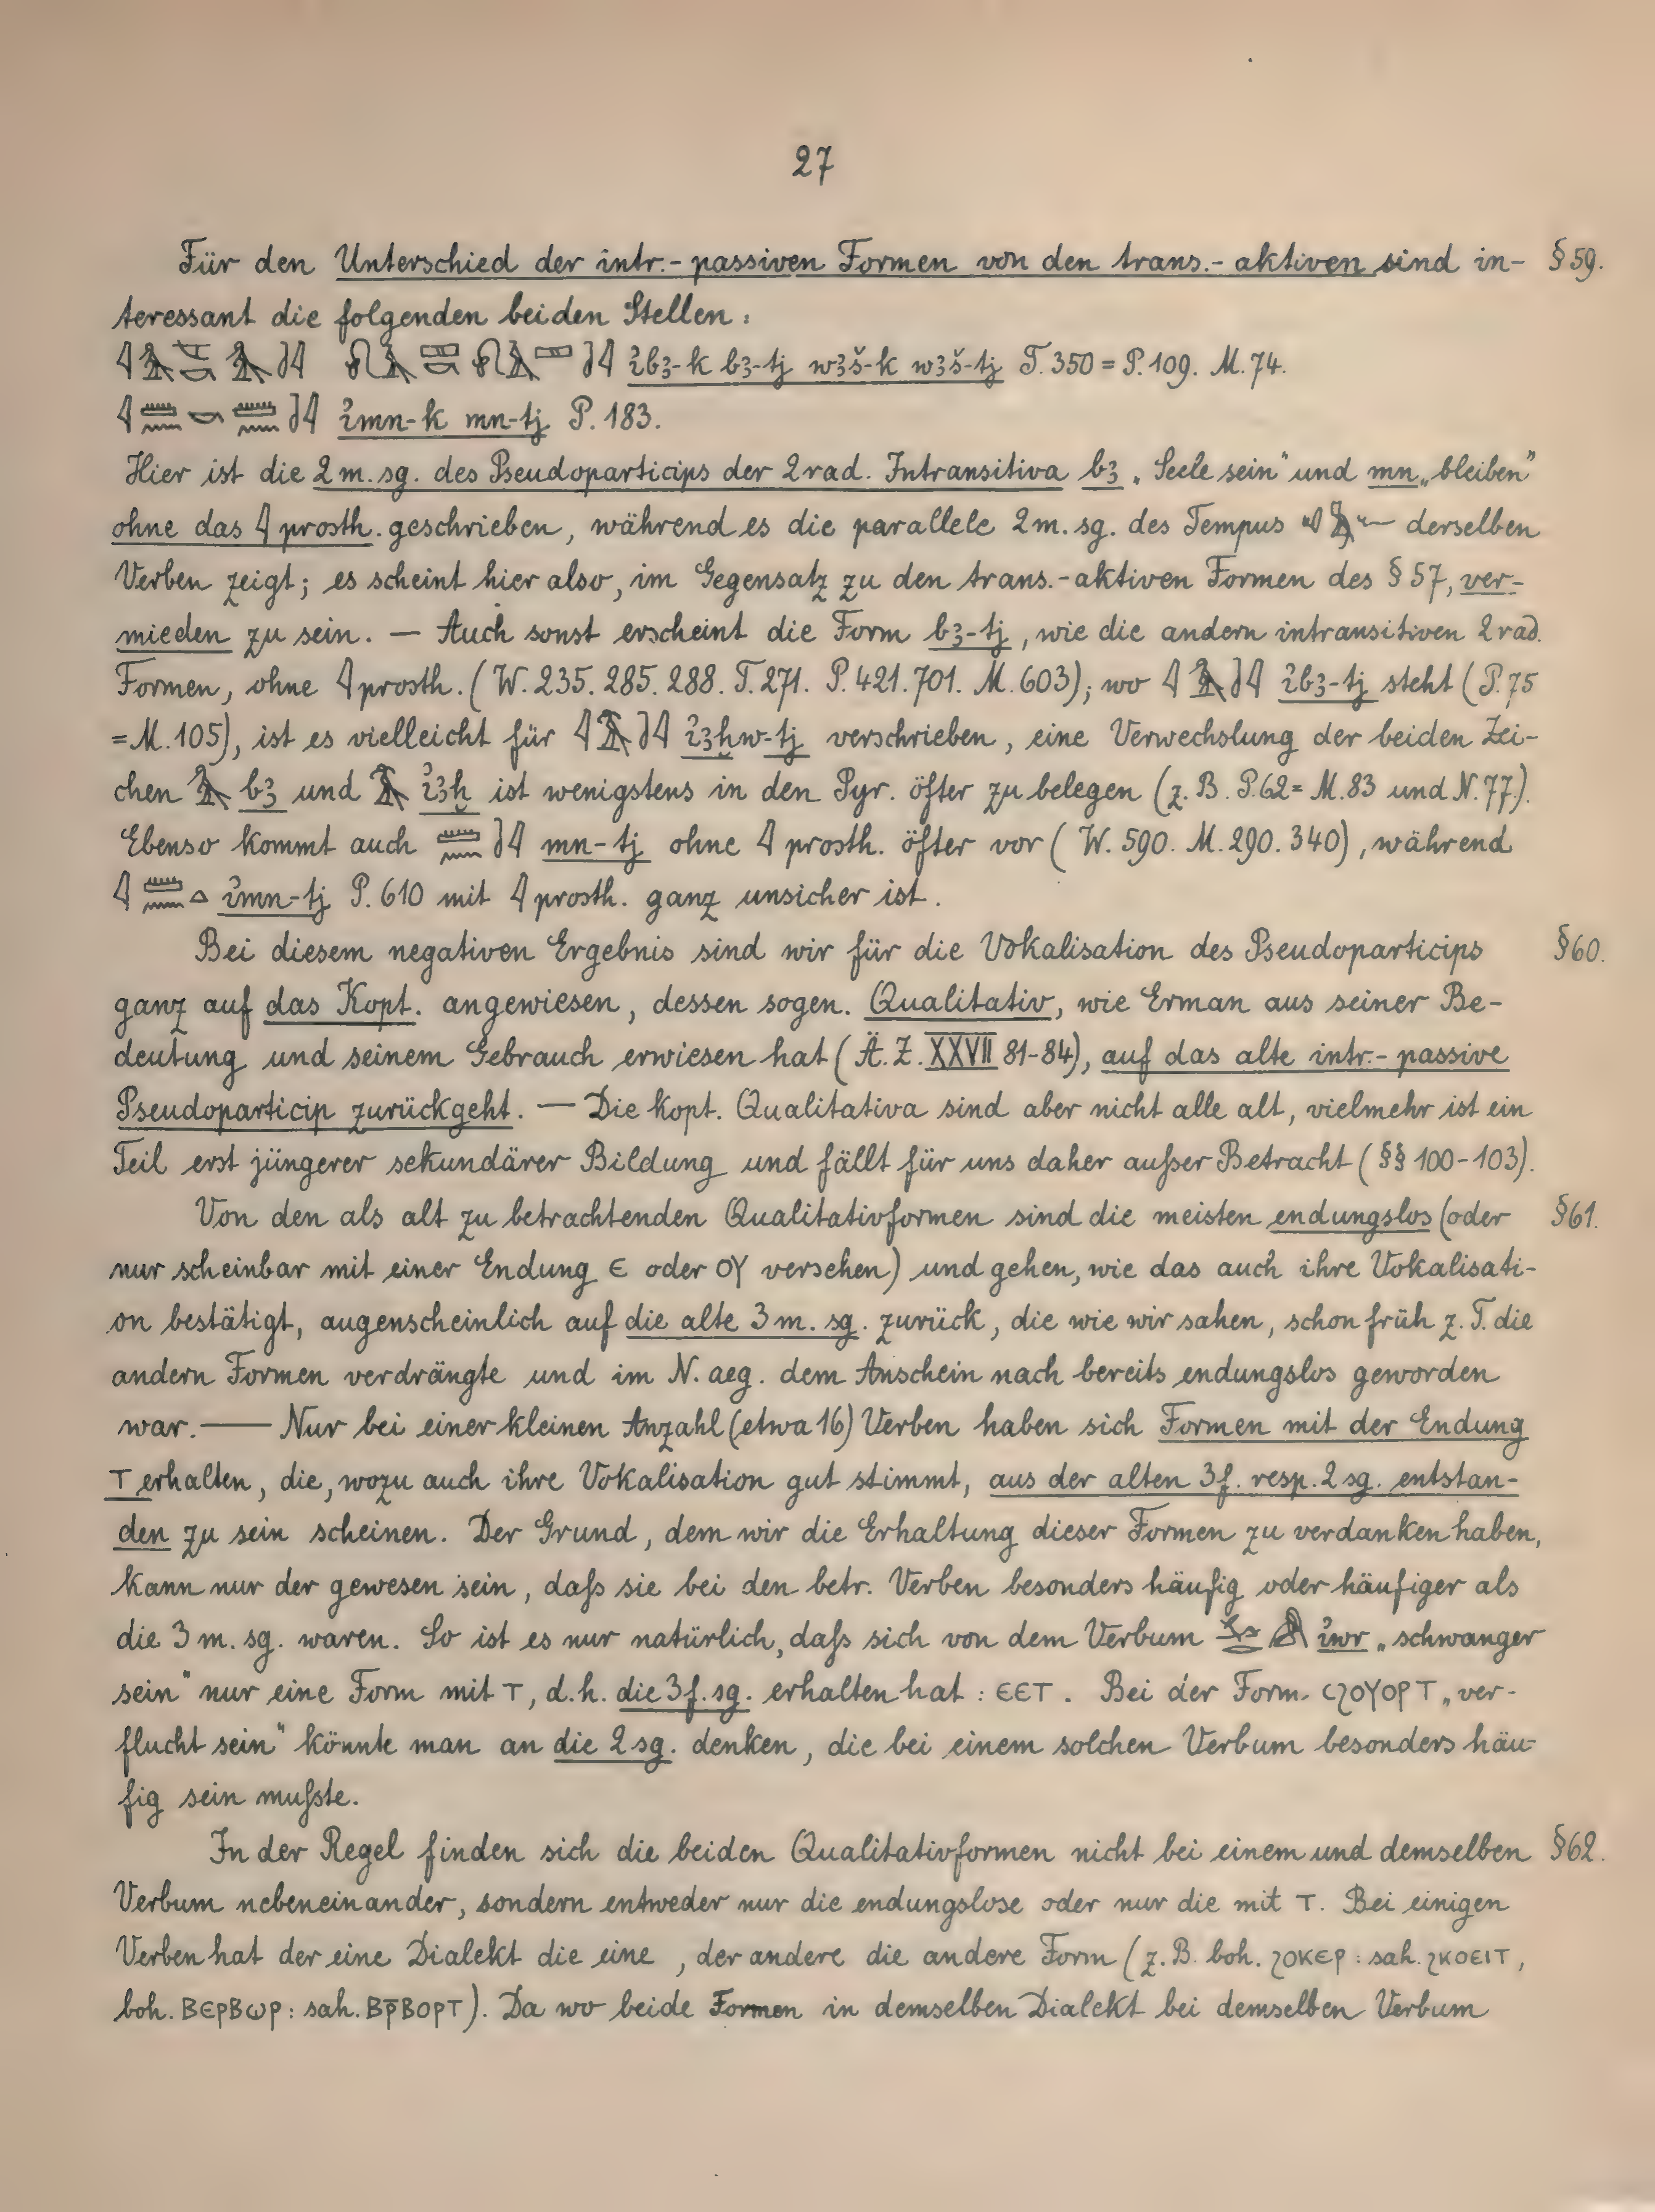 27
Für den Unterschied der intr.-passiven Formen von den trans.-aktiven sind in- § 59.
teressant die folgenden beiden Stellen:
ỉbꜣ-k bꜣ-tj wꜣš-k wꜣš-tj T. 350 = P. 109. M. 74.
ỉmn-k mn-tj P. 183.
Hier ist die 2 m. sg. des Pseudoparticips der 2 rad. Intransitiva bꜣ „Seele sein“ und mn „bleiben“
ohne das 𓇋 prosth. geschrieben, während es die parallele 2 m. sg. des Tempus derselben
Verben zeigt; es scheint hier also, im Gegensatz zu den trans.-aktiven Formen des § 57, ver-
mieden zu sein. — Auch sonst erscheint die Form bꜣ-tj, wie die andern intransitiven 2 rad.
Formen, ohne 𓇋 prosth. (W. 235. 285. 288. T. 271. P. 421. 701. M. 603); wo ỉbꜣ-tj steht (P. 75
= M. 105), ist es vielleicht für ỉꜣḫw-tj verschrieben, eine Verwechslung der beiden Zei-
chen bꜣ und ỉꜣḫ ist wenigstens in den Pyr. öfter zu belegen (z. B. P. 62 = M. 83 und N. 77).
Ebenso kommt auch 𓏠𓈖𓍘𓇋 mn-tj ohne 𓇋 prosth. öfter vor (W. 590. M. 290. 340), während
𓇋𓏠𓈖𓏏 ỉmn-tj P. 610 mit 𓇋 prosth. ganz unsicher ist.
Bei diesem negativen Ergebnis sind wir für die Vokalisation des Pseudoparticips § 60.
ganz auf das Kopt. angewiesen, dessen sogen. Qualitativ, wie Erman aus seiner Be-
deutung und seinem Gebrauch erwiesen hat (Ä. Z. XXVII 81-84), auf das alte intr.-passive
Pseudoparticip zurückgeht. — Die kopt. Qualitativa sind aber nicht alle alt, vielmehr ist ein
Teil erst jüngerer sekundärer Bildung und fällt für uns daher außer Betracht (§§ 100-103).
Von den als alt zu betrachtenden Qualitativformen sind die meisten endungslos (oder § 61.
nur scheinbar mit einer Endung ⲉ oder ⲟⲩ versehen) und gehen, wie das auch ihre Vokalisati-
on bestätigt, augenscheinlich auf die alte 3 m. sg. zurück, die wie wir sahen, schon früh z. T. die
andern Formen verdrängte und im N. aeg. dem Anschein nach bereits endungslos geworden
war. — Nur bei einer kleinen Anzahl (etwa 16) Verben haben sich Formen mit der Endung
ⲧ erhalten, die, wozu auch ihre Vokalisation gut stimmt, aus der alten 3 f. resp. 2 sg. entstan-
den zu sein scheinen. Der Grund, dem wir die Erhaltung dieser Formen zu verdanken haben,
kann nur der gewesen sein, daß sie bei den betr. Verben besonders häufig oder häufiger als
die 3 m. sg. waren. So ist es nur natürlich, daß sich von dem Verbum ỉwr „schwanger
sein“ nur eine Form mit ⲧ, d. h. die 3 f. sg. erhalten hat: ⲉⲉⲧ. Bei der Form ⲥϩⲟⲩⲟⲣⲧ „ver-
flucht sein“ könnte man an die 2 sg. denken, die bei einem solchen Verbum besonders häu-
fig sein mußte.
In der Regel finden sich die beiden Qualitativformen nicht bei einem und demselben § 62.
Verbum nebeneinander, sondern entweder nur die endungslose oder nur die mit ⲧ. Bei einigen
Verben hat der eine Dialekt die eine, der andere die andere Form (z. B. boh. ϩⲟⲕⲉⲣ: sah. ϩⲕⲟⲉⲓⲧ,
boh. ⲃⲉⲣⲃⲱⲣ: sah. ⲃⲣ̄ⲃⲟⲣⲧ). Da wo beide Formen in demselben Dialekt bei demselben Verbum